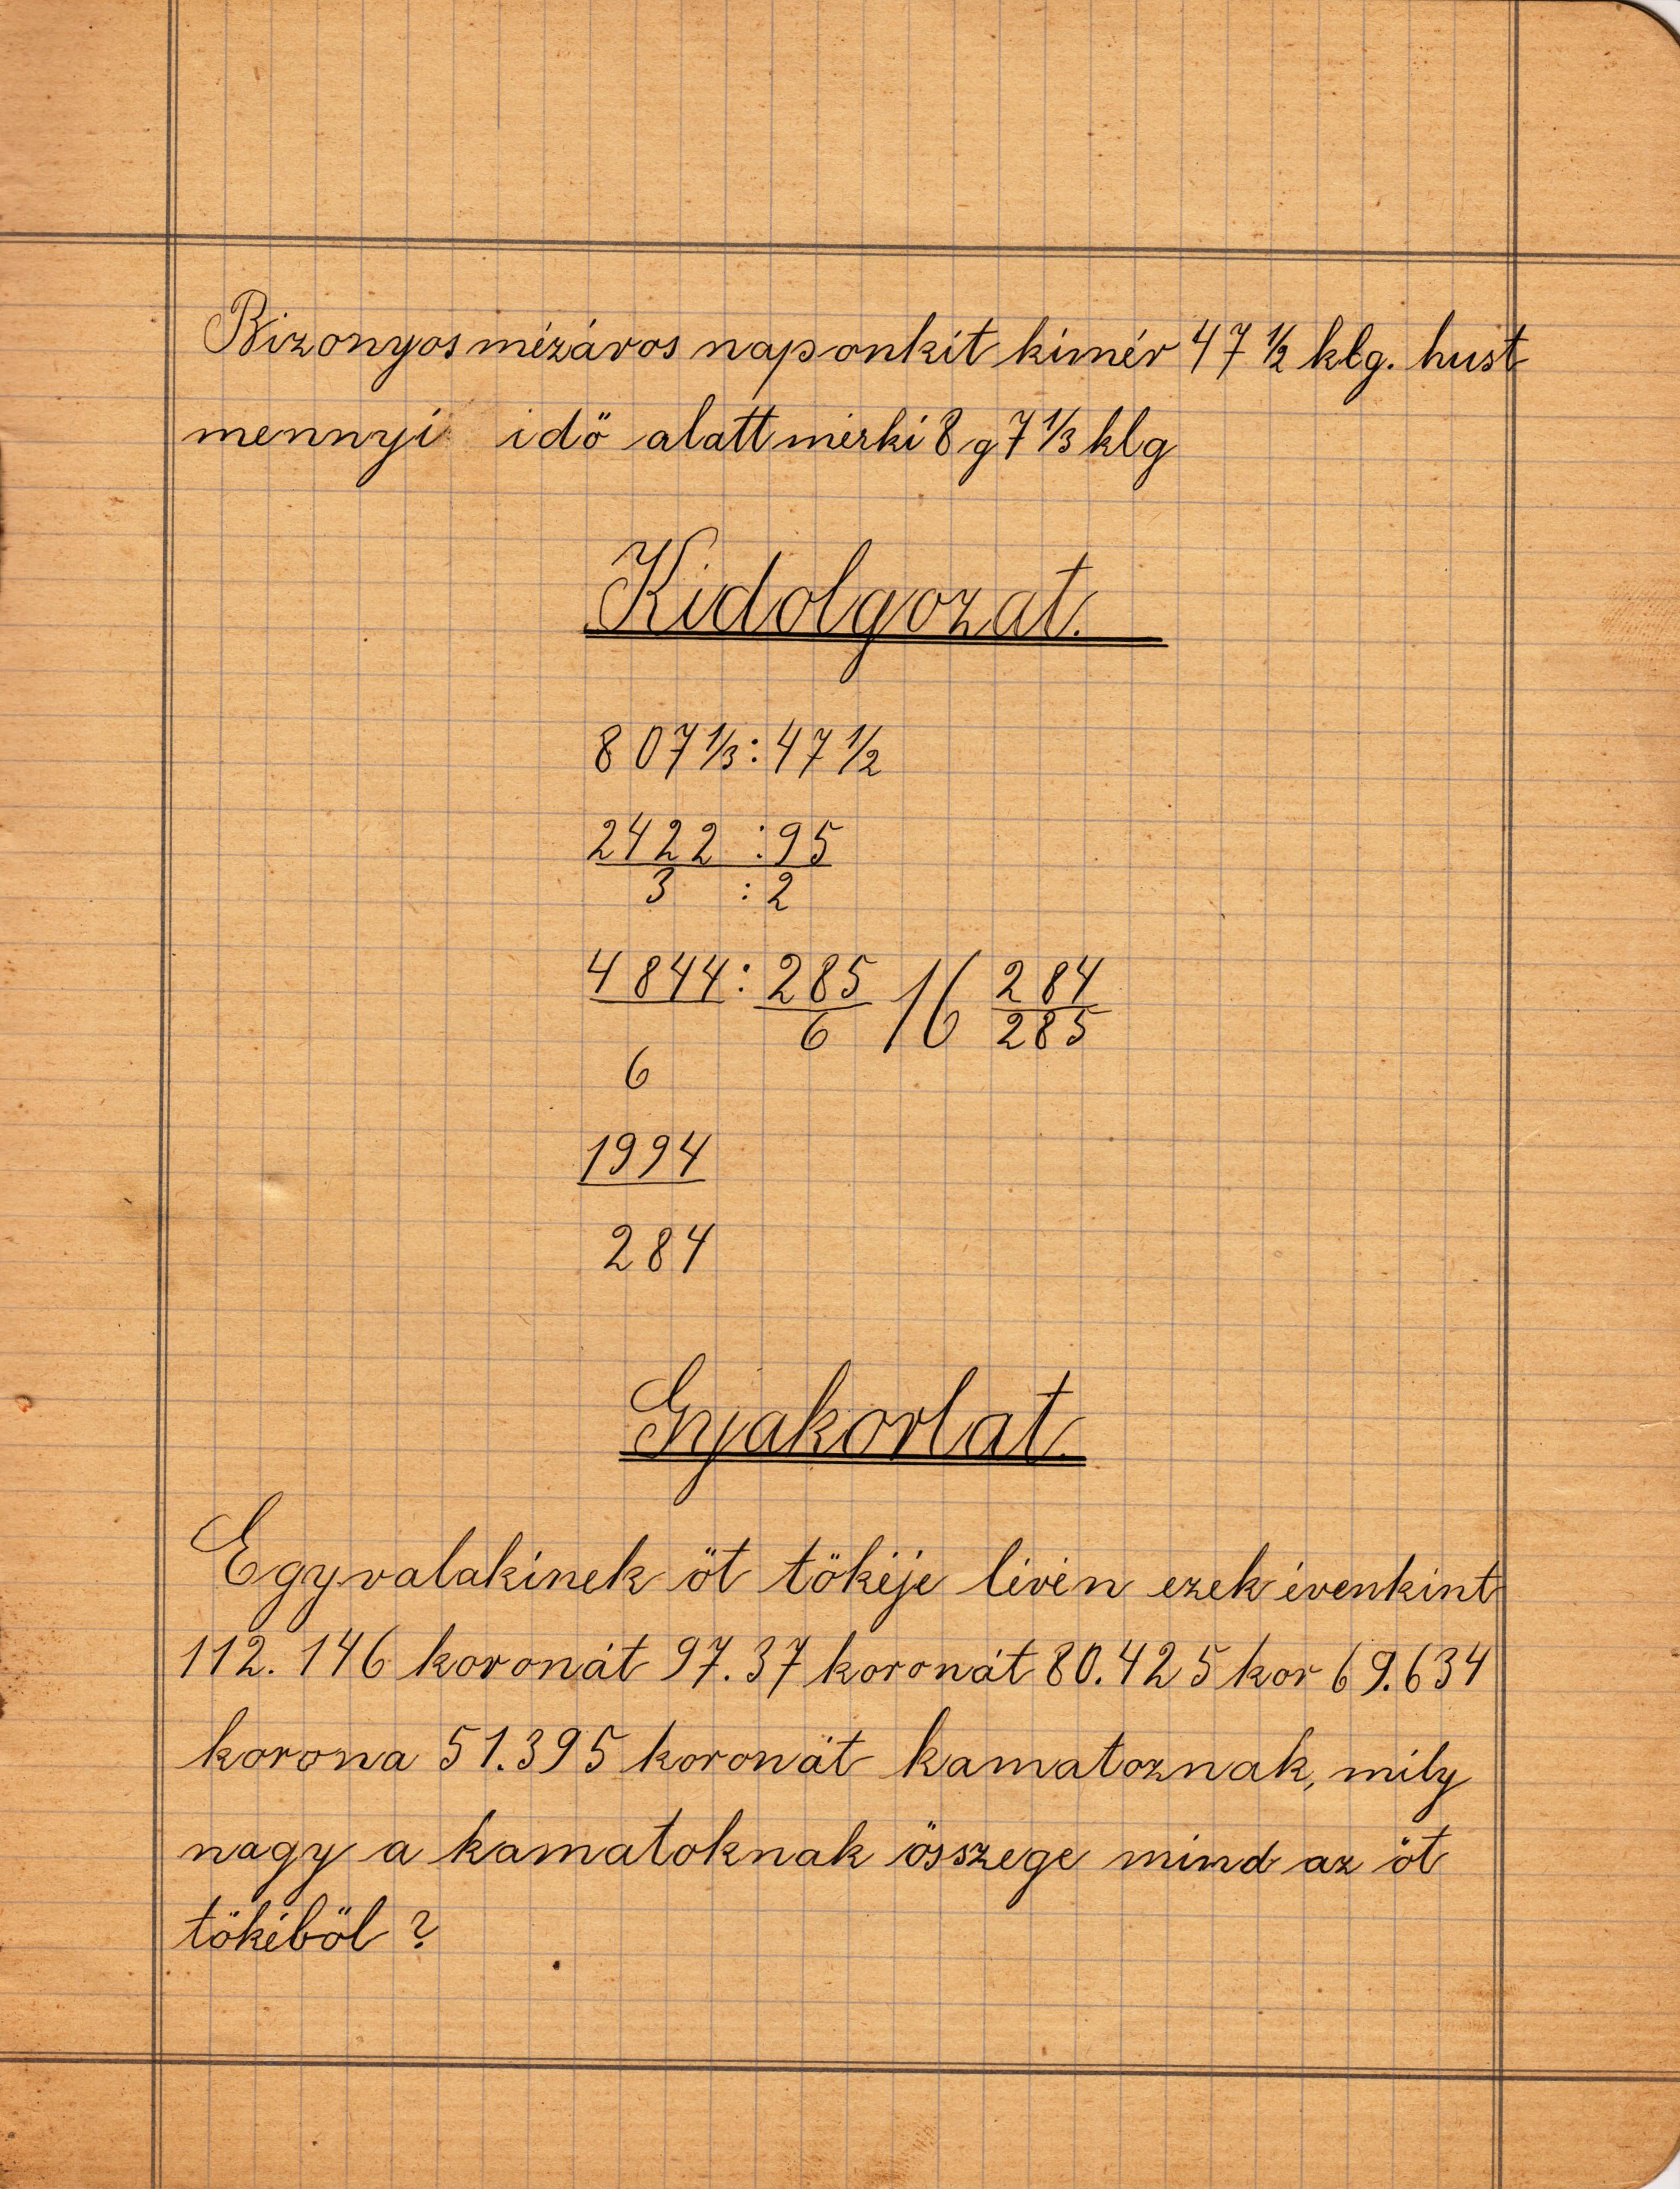 Bizonyos mézáros naponkit kimér 47 1/2 klg. hust
mennyi idö alatt mérki 8 g 7 1/3 klg
Kidolgozat.
8 07 1/3 : 47 1/2
2422 : 95
3 : 2
4844 : 285 16 284
6 285
6
1994
284
Gyakorlat.
Egyvalakinek öt tökéje lévén ezek évenkint
112. 146 koronát 97. 37 koronát 80. 425 kor 69. 634
korona 51. 395 koronát kamatoznak, mily
nagy a kamatoknak összege mind az öt
tökéböl ?